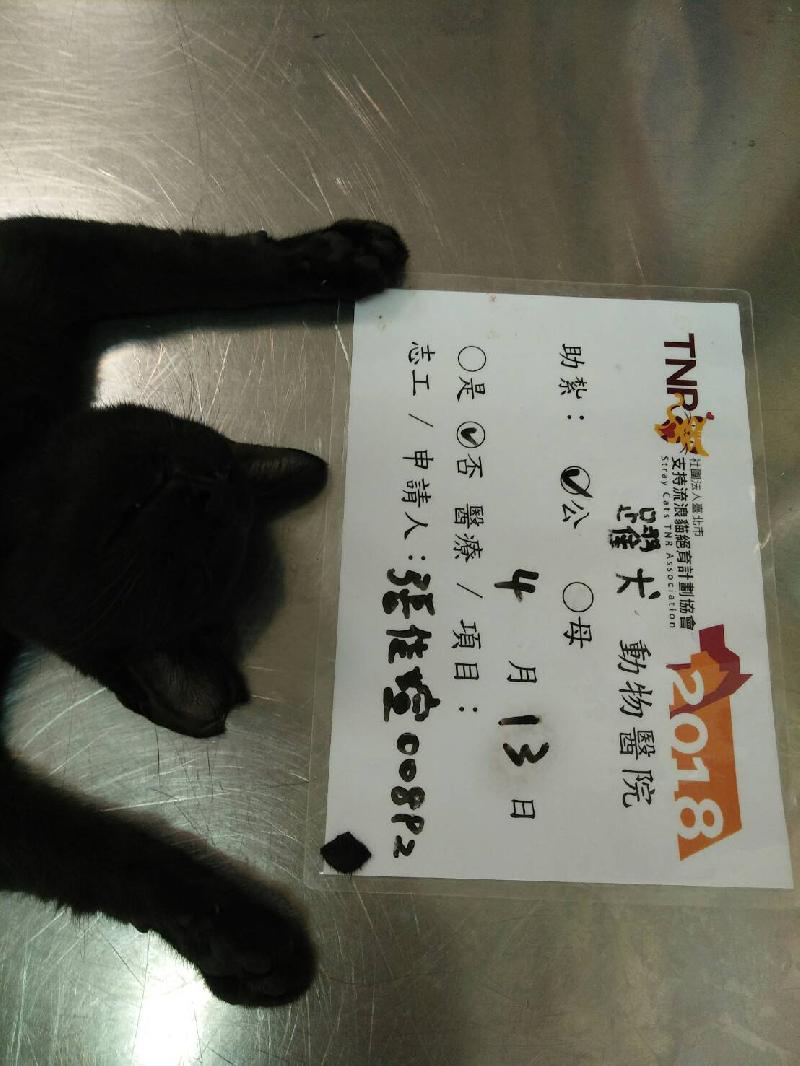 TNR
社團法人臺北市
支持流浪貓絕育計劃協會
Stray Cats TNR Association
2018
犬 動物醫院
助紮： 公 母
4 月 13 日
是 否 醫療 / 項目：
志工 / 申請人：張佳 008P2